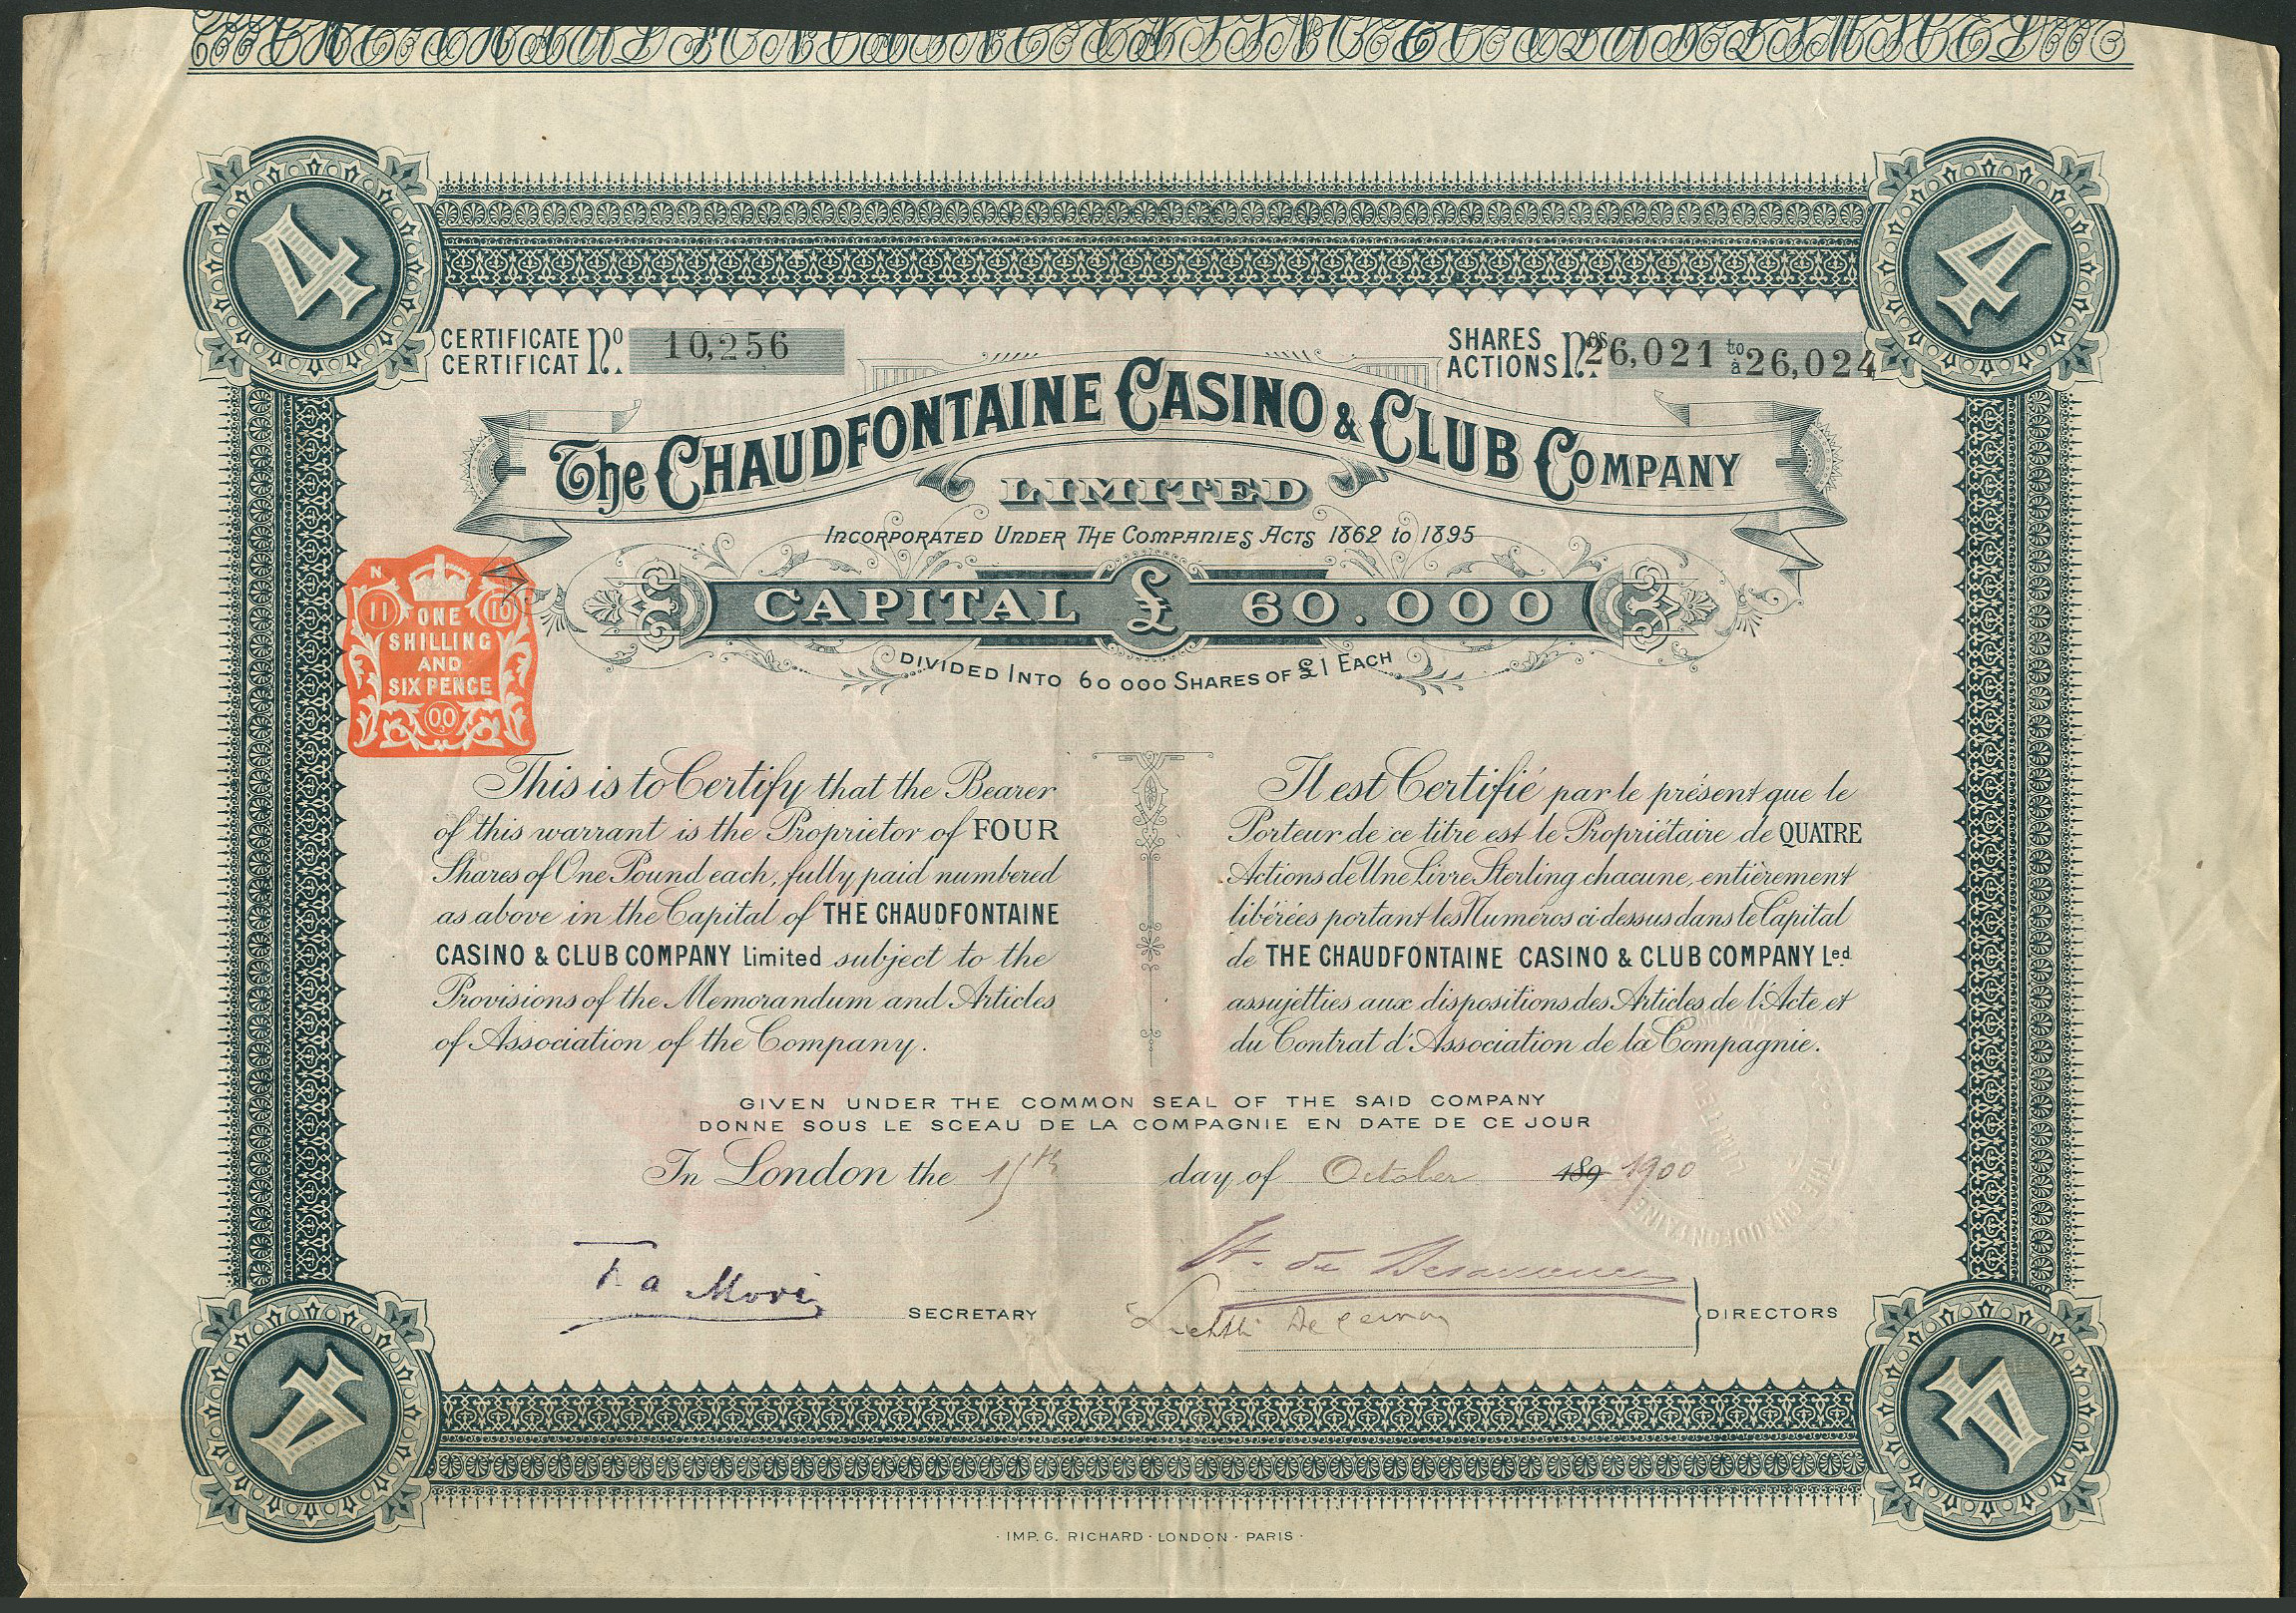 4
4
CERTIFICATE
CERTIFICAT No. 10,256
SHARES
ACTIONS Nos. 26,021 to
à 26,024
The CHAUDFONTAINE CASINO & CLUB COMPANY
LIMITED
INCORPORATED UNDER THE COMPANIES ACTS 1862 to 1895
CAPITAL £ 60.000
DIVIDED INTO 60 000 SHARES OF £1 EACH
N
11 10
ONE
SHILLING
AND
SIX PENCE
00
This is to Certify that the Bearer
of this warrant is the Proprietor of FOUR
Shares of One Pound each, fully paid numbered
as above in the Capital of THE CHAUDFONTAINE
CASINO & CLUB COMPANY Limited subject to the
Provisions of the Memorandum and Articles
of Association of the Company.
Il est Certifié par le présent que le
Porteur de ce titre est le Propriétaire de QUATRE
Actions de Une Livre Sterling chacune, entièrement
libérées portant les Numéros ci dessus dans le Capital
de THE CHAUDFONTAINE CASINO & CLUB COMPANY Led.
assujetties aux dispositions des Articles de l'Acte et
du Contrat d'Association de la Compagnie.
GIVEN UNDER THE COMMON SEAL OF THE SAID COMPANY
DONNE SOUS LE SCEAU DE LA COMPAGNIE EN DATE DE CE JOUR
In London the 15th day of October 189 1900
SECRETARY
DIRECTORS
THE CHAUDFONTAINE
LIMITED
4
4
· IMP. G. RICHARD · LONDON · PARIS ·